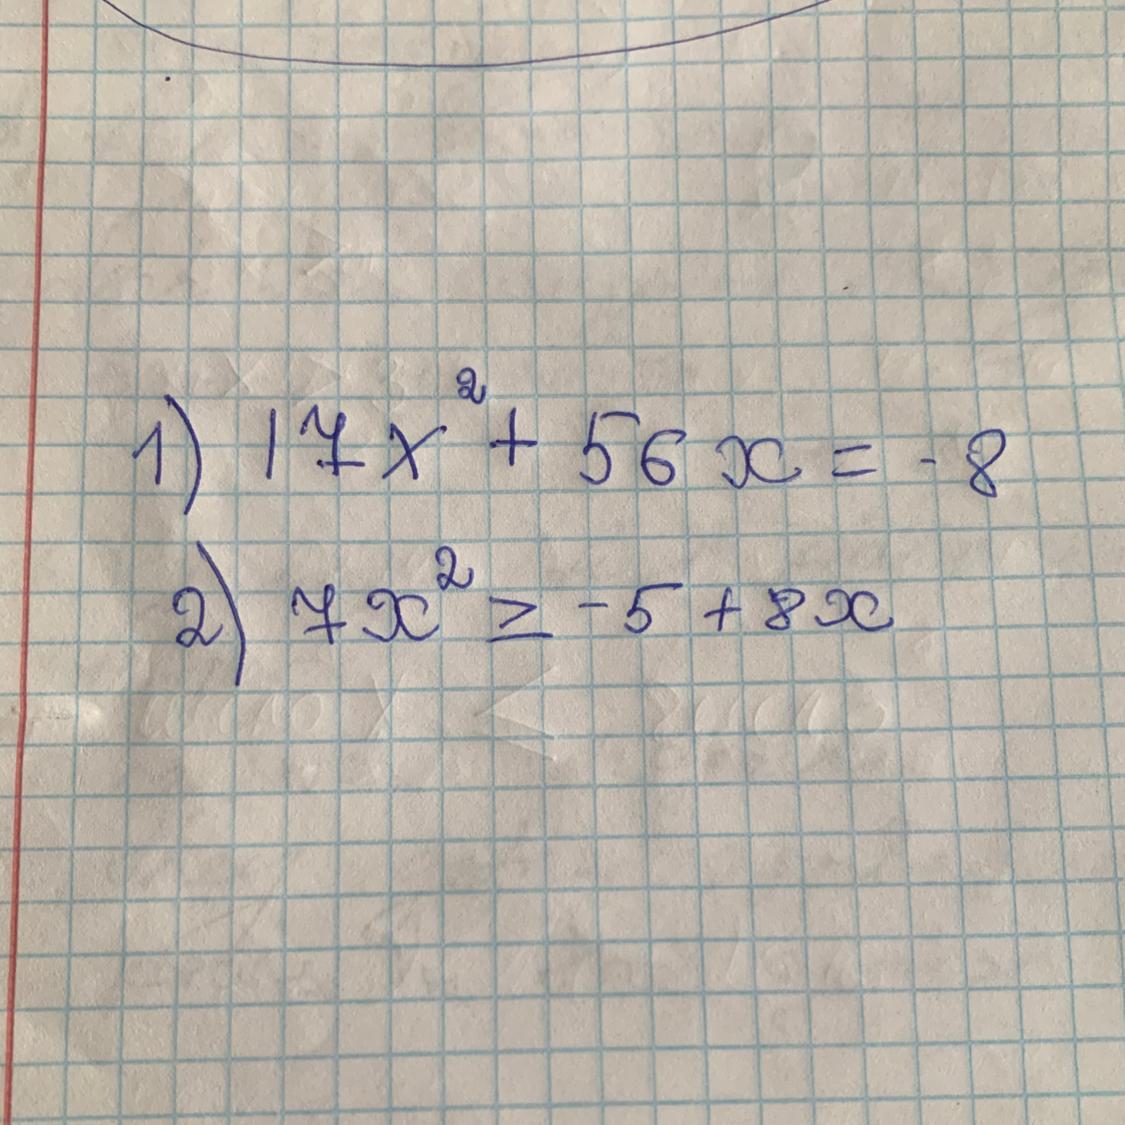 1) 17x² + 56x = -8
2) 7x² ≥ -5 + 8x